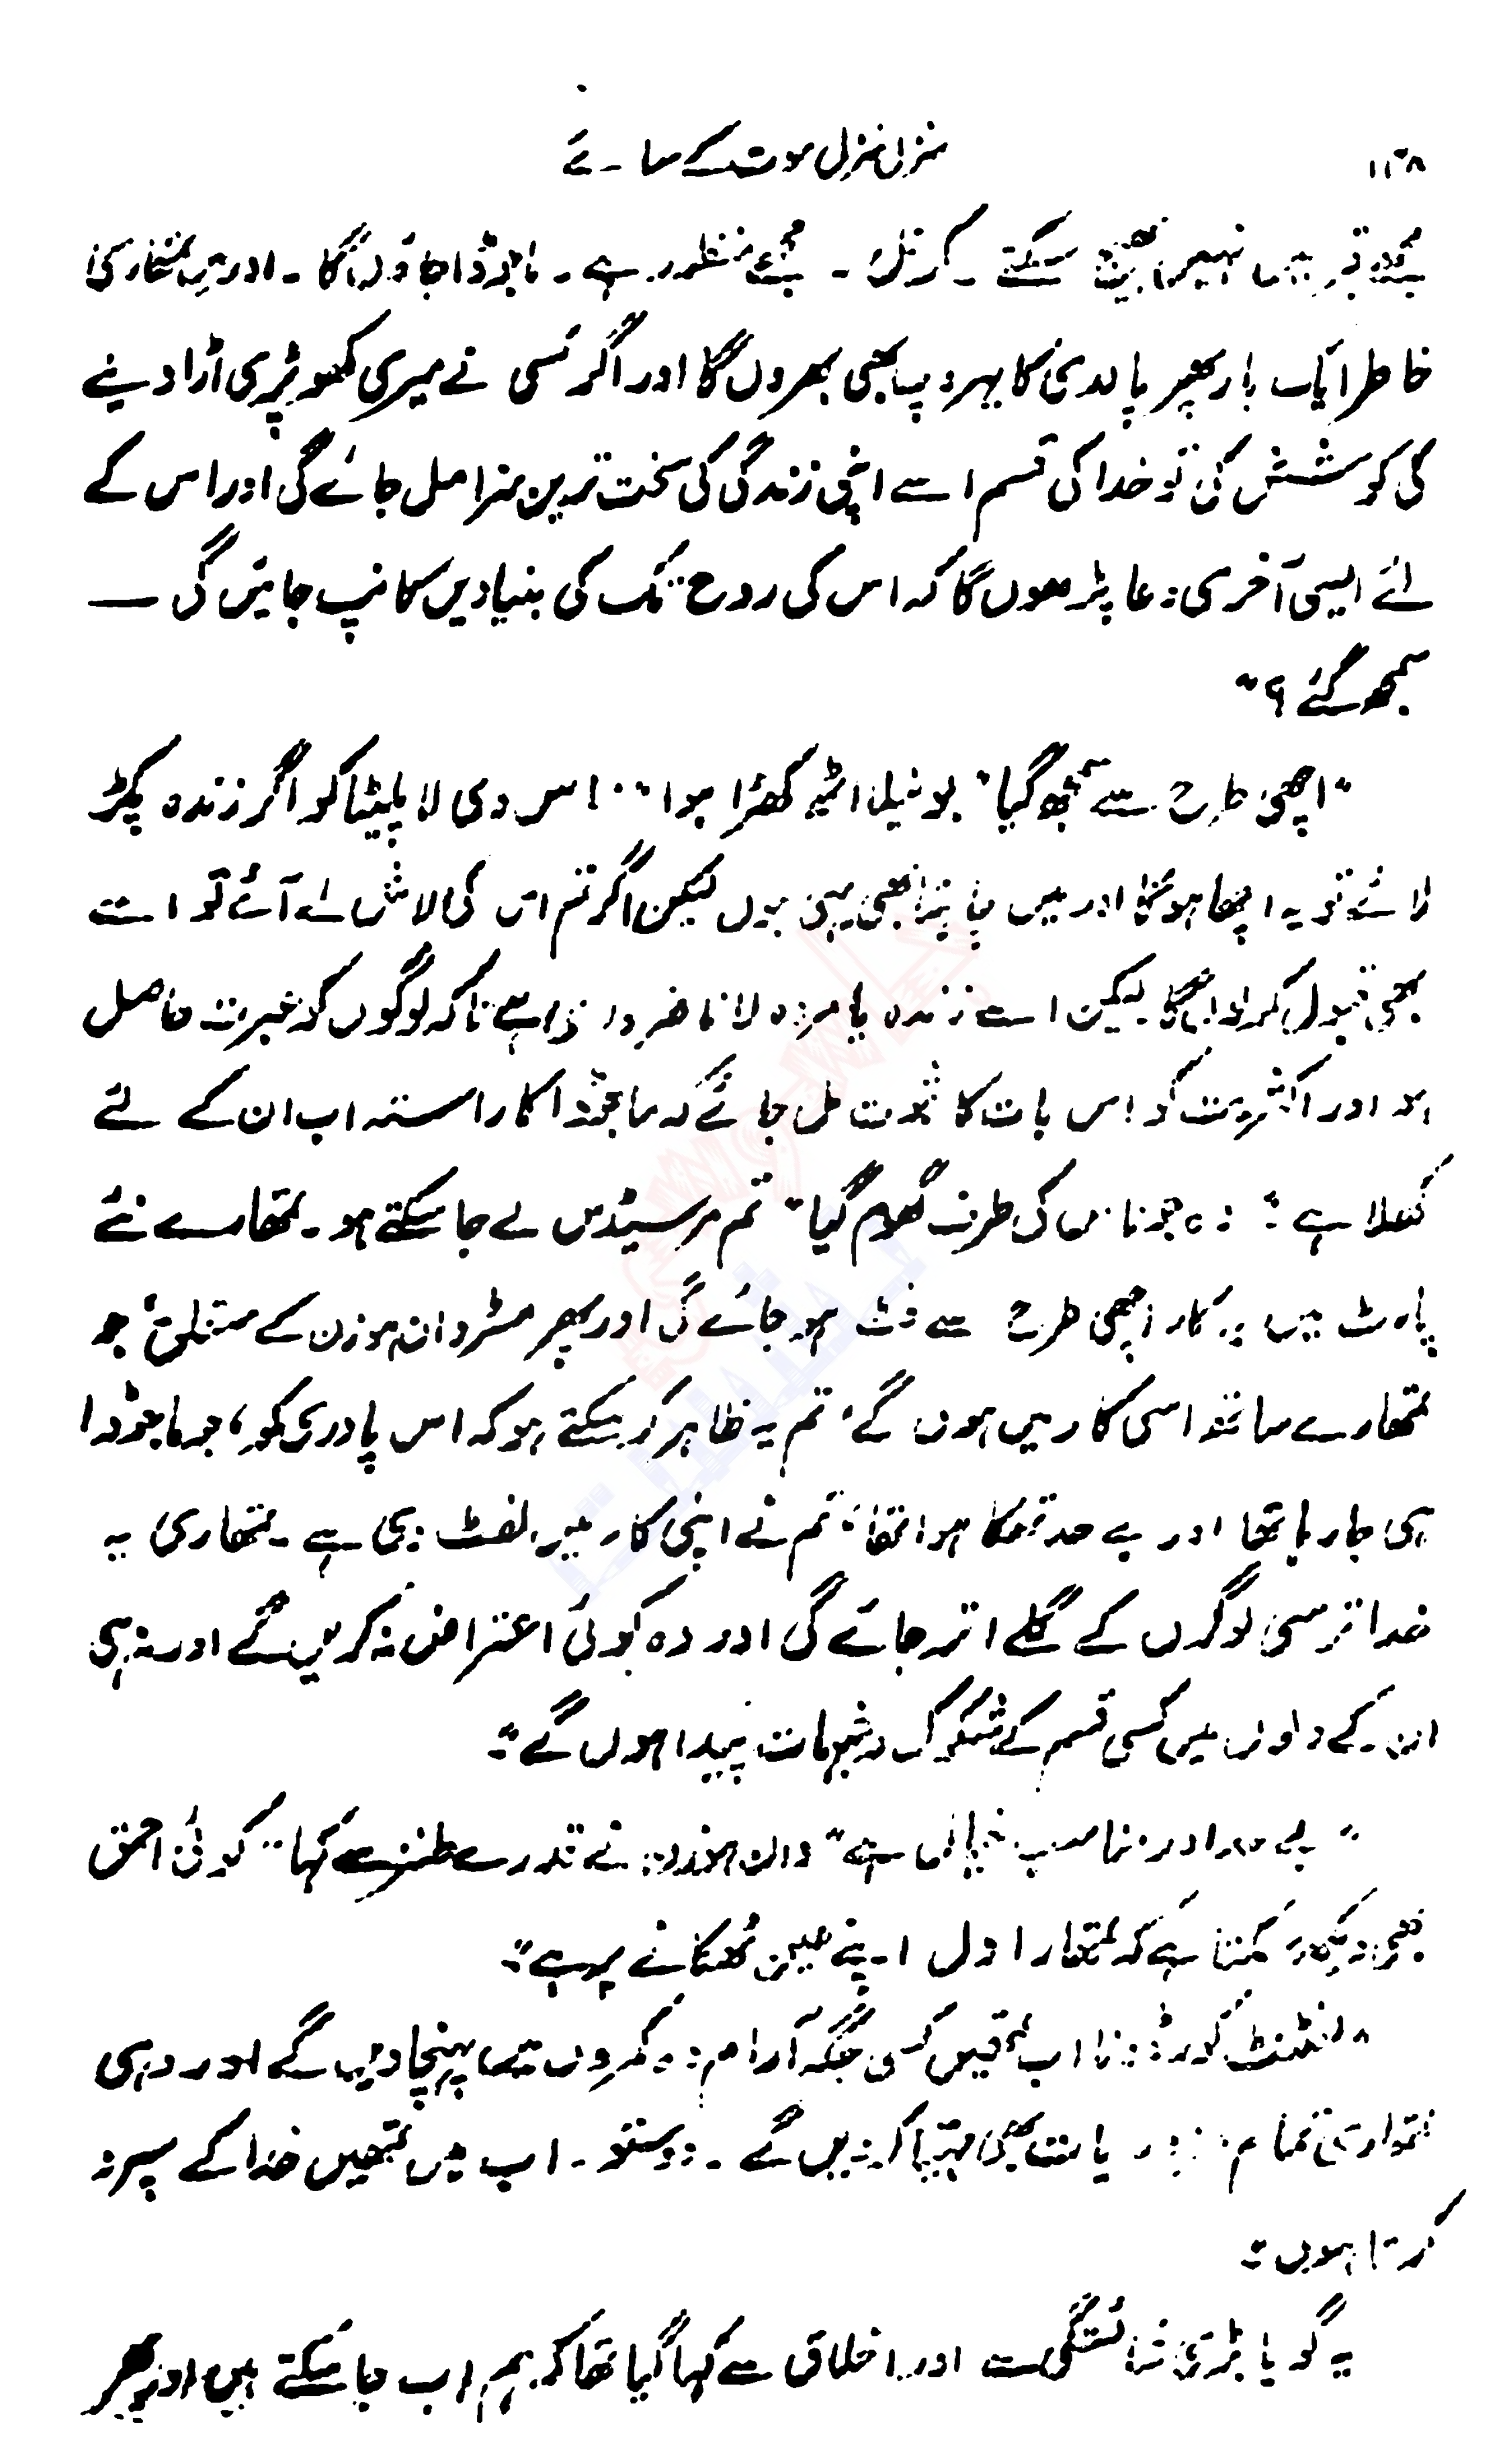 ۱۲۸ منزل منزل موت کے سائے
قبر میں نہیں بھیج سکتے ۔ کرنل ۔ مجھے منظور ہے ۔ ماجوڈا جاؤں گا ۔ اور میں تمھاری
خاطر ایک بار پھر پادری کا بہروپ بھی بھروں گا اور اگر کسی نے میری کھوپڑی اڑا دینے
کی کوشش کی تو خدا کی قسم اسے اپنی زندگی کی سخت ترین سزا مل جائے گی اور اس کے
لئے ایسی آخری دعا پڑھوں گا کہ اس کی روح تک کی بنیادیں کانپ جائیں گی —
سمجھ گئے ؟"
"اچھی طرح سے سمجھ گیا" بونیلا اٹھ کھڑا ہوا "اس دی لا پلیٹا کو اگر زندہ پکڑ
لائے تو یہ اچھا ہوگا اور میں چاہتا بھی یہی ہوں لیکن اگر تم اس کی لاش لے آئے تو اسے
بھی قبول کر لوں گا لیکن اسے زندہ یا مردہ لانا ضرور ہے تاکہ لوگوں کو عبرت حاصل
ہو اور اکثریت کو اس بات کا ثبوت مل جائے کہ ماجوڈا کا راستہ اب ان کے لئے
کھلا ہے" وہ جوناس کی طرف گھوم گیا "تم مرسیڈس لے جا سکتے ہو ۔ تمھارے نئے
پارٹ میں یہ کار اچھی طرح سے فٹ ہو جائے گی اور پھر مسٹر وان ہوزن کے متعلق جو
تمھارے ساتھ اسی کار میں ہوں گے، تم یہ ظاہر کر سکتے ہو کہ اس پادری کو، جو ماجوڈا
ہی جا رہا تھا اور بے حد تھکا ہوا تھا تم نے اپنی کار میں لفٹ دی ہے ۔ تمھاری یہ
خدا ترسی لوگوں کے گلے اتر جائے گی اور وہ کوئی اعتراض نہ کریں گے اور نہ ہی
ان کے دلوں میں کسی قسم کے شکوک و شبہات پیدا ہوں گے"۔
"بے حد اور مناسب خیال ہے" وان ہوزن نے قدرے طنز سے کہا "کوئی احمق
بھی دیکھ سکتا ہے کہ تمھارا دل اپنے عین ٹھکانے پر ہے"۔
"لفٹنٹ اب تمھیں کسی جگہ آرام دہ کمروں میں پہنچا دیں گے اور وہی
تمھاری تمام ضروریات بھی مہیا کر دیں گے ۔ دوستو ۔ اب میں تمھیں خدا کے سپرد
کرتا ہوں"۔
یہ گویا بڑی شائستگی سے اور اخلاق سے کہا گیا تھا کہ ہم اب جا سکتے ہیں اور پھر